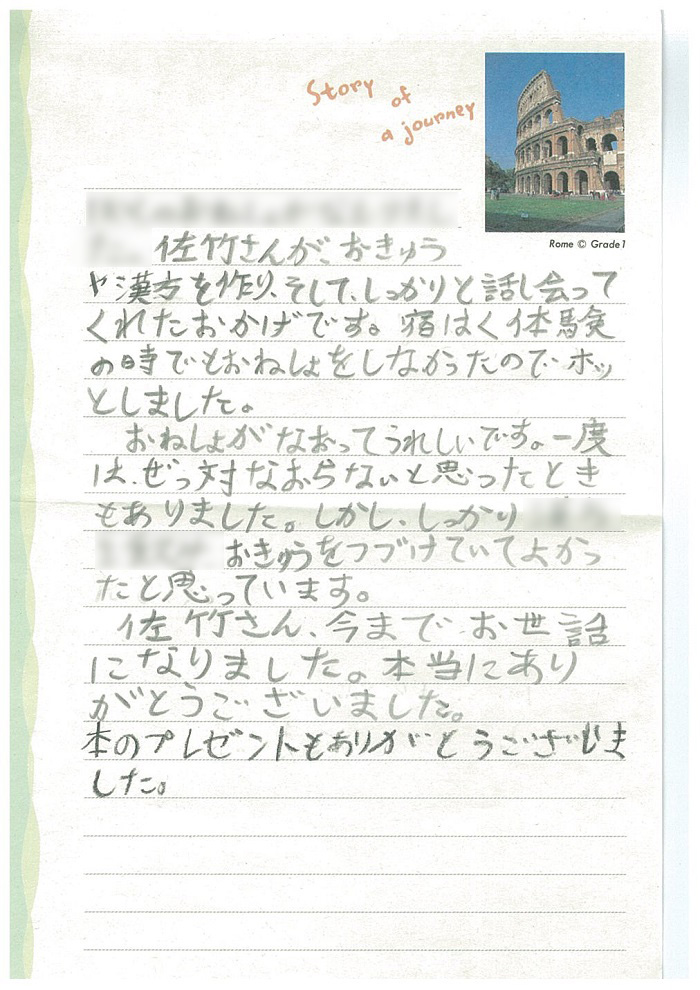 Story of
a journey
Rome © Grade1
佐竹さんが、おきゅう
や漢方を作り、そして、しっかりと話し会って
くれたおかげです。宿はく体験
の時でもおねしょをしなかったのでホッ
としました。
おねしょがなおってうれしいです。一度
は、ぜっ対なおらないと思ったとき
もありました。しかし、しっかり
おきゅうをつづけていてよかっ
たと思っています。
佐竹さん、今まで、お世話
になりました。本当にあり
がとうございました。
本のプレゼントもありがとうございま
した。